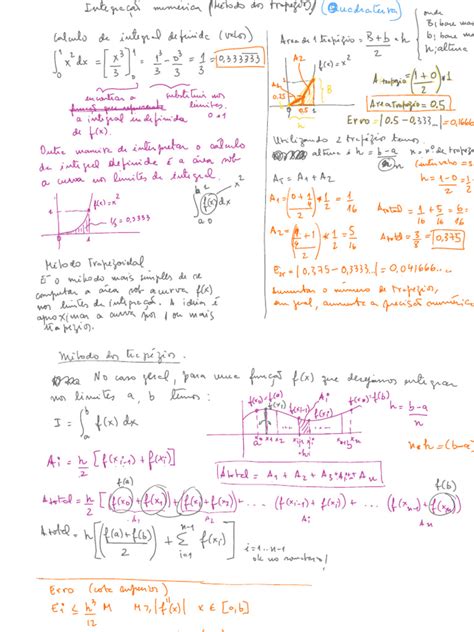 Integração numérica (Método dos trapézios) / Quadratura
Calculo de integral definida (valor)
∫₀¹ x² dx = [x³/3]₀¹ = 1³/3 - 0³/3 = 1/3 = 0,333333
encontrar a
função que representa
a integral indefinida
de f(x).
substituir nos
limites.
0 e 1
Outra maneira de interpretar o cálculo
de integral definida é a área sob
a curva nos limites da integral.
f(x) = x²
1/3 = 0,3333
∫ₐᵇ f(x) dx
Método Trapezoidal
É o método mais simples de se
computar a área sob a curva f(x)
nos limites de integração. A ideia é
aproximar a curva por 1 ou mais
trapézios.
onde
B; base mai
b; base men
h; altura
Area de 1 trapézio = (B+b)/2 * h
f(x) = x²
A trapézio = (1+0)/2 * 1
Area Trapézio = 0,5
Erro = |0.5 - 0,333...| = 0,1666
Utilizando 2 trapézio temos
altura é h = (b-a)/n
n = nº de trapézio
(intervalos =
AT = A1 + A2
h = (1-0)/2 =
Atotal = 1/16 + 5/16 = 6/16
Atotal = 3/8 = 0,375
Err = |0,375 - 0,3333...| = 0,041666...
Aumentar o número de trapézios,
em geral, aumenta a precisão numérica
Método dos trapézios.
No caso geral, para uma função f(x) que desejamos integrar
nos limites a, b temos:
I = ∫ₐᵇ f(x) dx
h = (b-a)/n
n*h = (b-a)
Ai = h/2 [f(xi-1) + f(xi)]
Atotal = A1 + A2 + A3 + Ai + An
f(a)
f(b)
Atotal = h/2 [(f(x0) + f(x1)) + (f(x1) + f(x2)) + ... (f(xi-1) + f(xi)) + ... + (f(xn-1) + f(xn))]
A1
A2
Ai
An
Atotal = h [(f(a) + f(b))/2 + Σ f(xi)]
n-1
i=1
i = 1...n-1
ok no somatório!
Erro (cota superior)
Ei ≤ h³/12 M M ≥ |f''(x)| x ∈ [a,b]